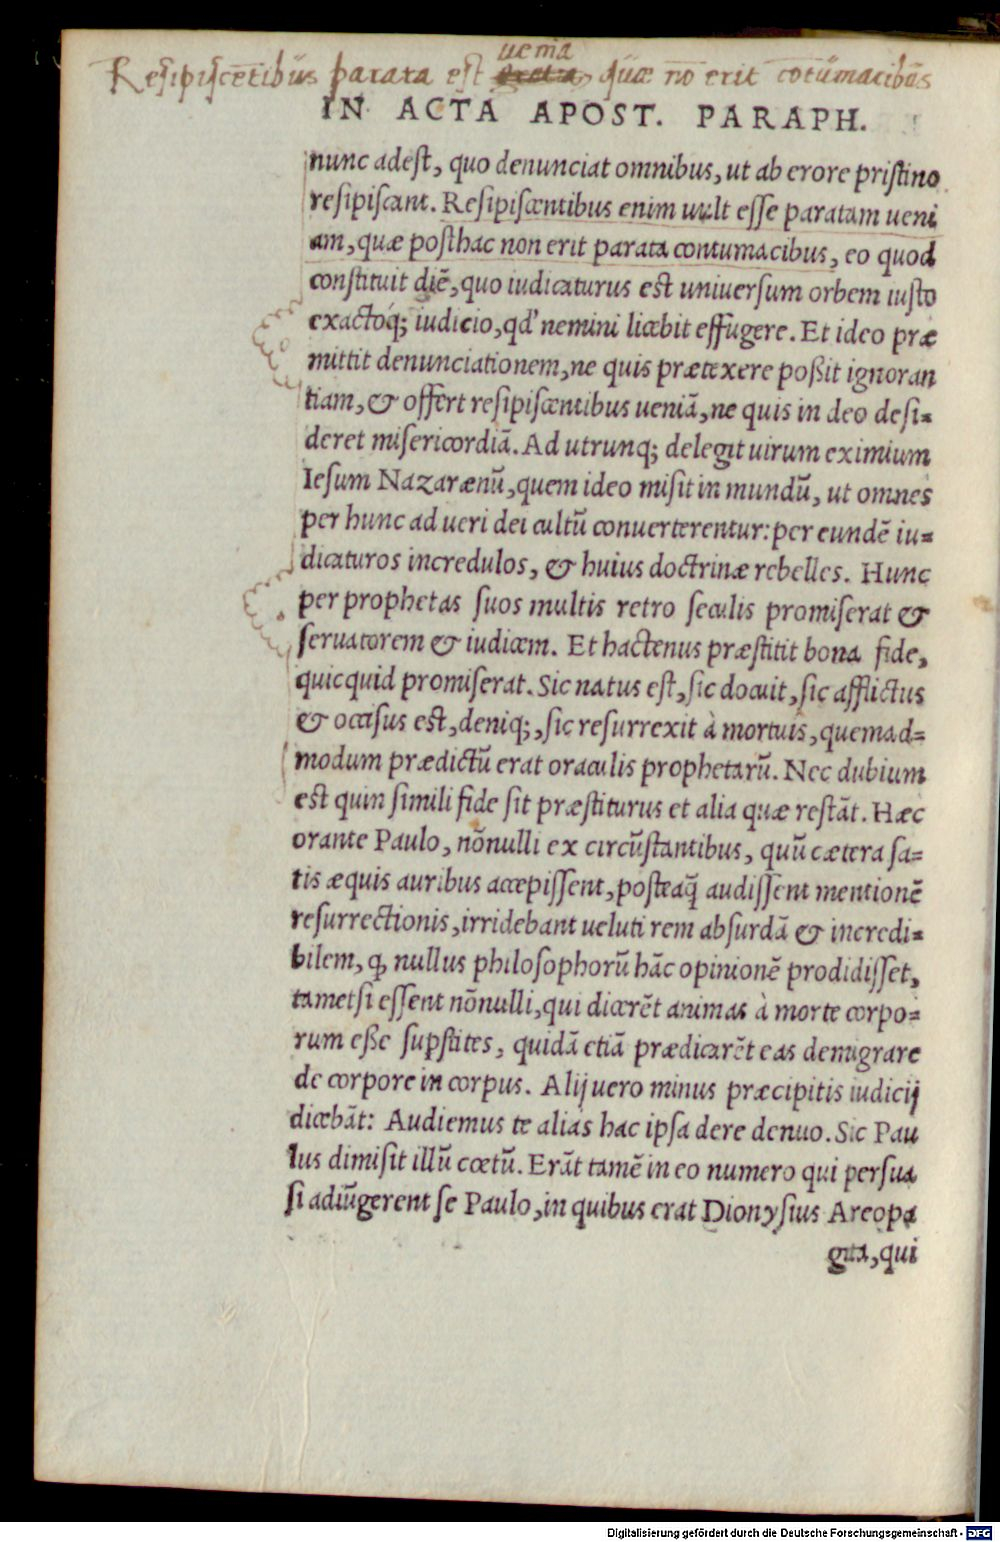 uenia
Resipiscētibus parata est gratia, quæ nō erit cōtumacibus
IN ACTA APOST. PARAPH.
nunc adest, quo denunciat omnibus, ut ab erore pristino
resipiscant. Resipiscentibus enim uult esse paratam ueni
am, quæ posthac non erit parata contumacibus, eo quod
constituit diē, quo iudicaturus est uniuersum orbem iusto
exactoq́; iudicio, qd' nemini licebit effugere. Et ideo præ
mittit denunciationem, ne quis prætexere poßit ignoran
tiam, & offert resipiscentibus ueniā, ne quis in deo desi=
deret misericordiā. Ad utrunq; delegit uirum eximium
Iesum Nazarænū, quem ideo misit in mundū, ut omnes
per hunc ad ueri dei cultū conuerterentur: per eundē iu=
dicaturos incredulos, & huius doctrinæ rebelles. Hunc
per prophetas suos multis retro seculis promiserat &
seruatorem & iudicem. Et hactenus præstitit bona fide,
quicquid promiserat. Sic natus est, sic docuit, sic afflictus
& occisus est, deniq;, sic resurrexit à mortuis, quemad=
modum prædictū erat oraculis prophetarū. Nec dubium
est quin simili fide sit præstiturus et alia quæ restāt. Hæc
orante Paulo, nōnulli ex circūstantibus, quū cætera sa=
tis æquis auribus accepissent, posteaq̄ audissent mentionē
resurrectionis, irridebant ueluti rem absurdā & incredi=
bilem, ꝙ nullus philosophorū hāc opinionē prodidisset,
tametsi essent nōnulli, qui dicerēt animas à morte corpo=
rum eße suꝑstites, quidā etiā prædicarēt eas demigrare
de corpore in corpus. Alij uero minus præcipitis iudicij
dicebāt: Audiemus te alias hac ipsa de re denuo. Sic Pau
lus dimisit illū cœtū. Erāt tamē in eo numero qui persua
si adiūgerent se Paulo, in quibus erat Dionysius Areopa
gita, qui
Digitalisierung gefördert durch die Deutsche Forschungsgemeinschaft - DFG